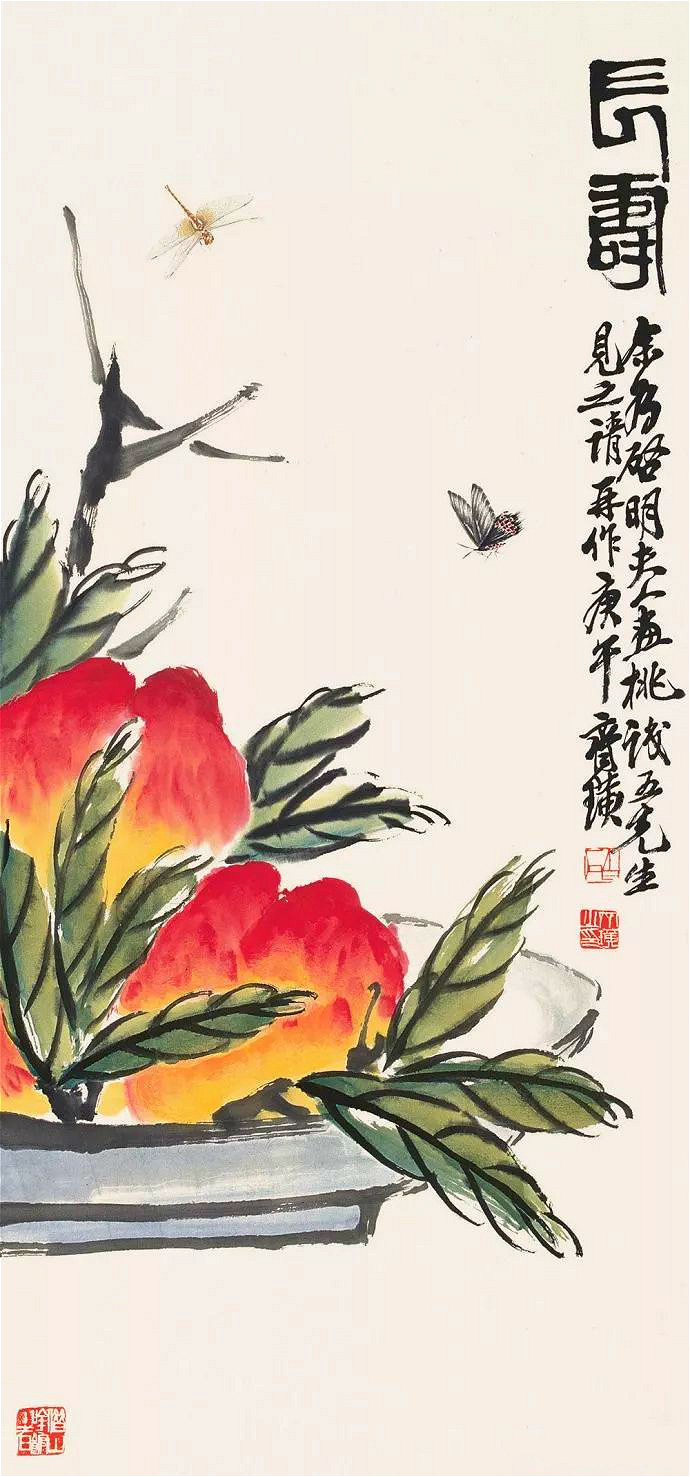 長壽
余为啓明夫人畫桃誠五先生
見之請再作庚午齊璜
木居士